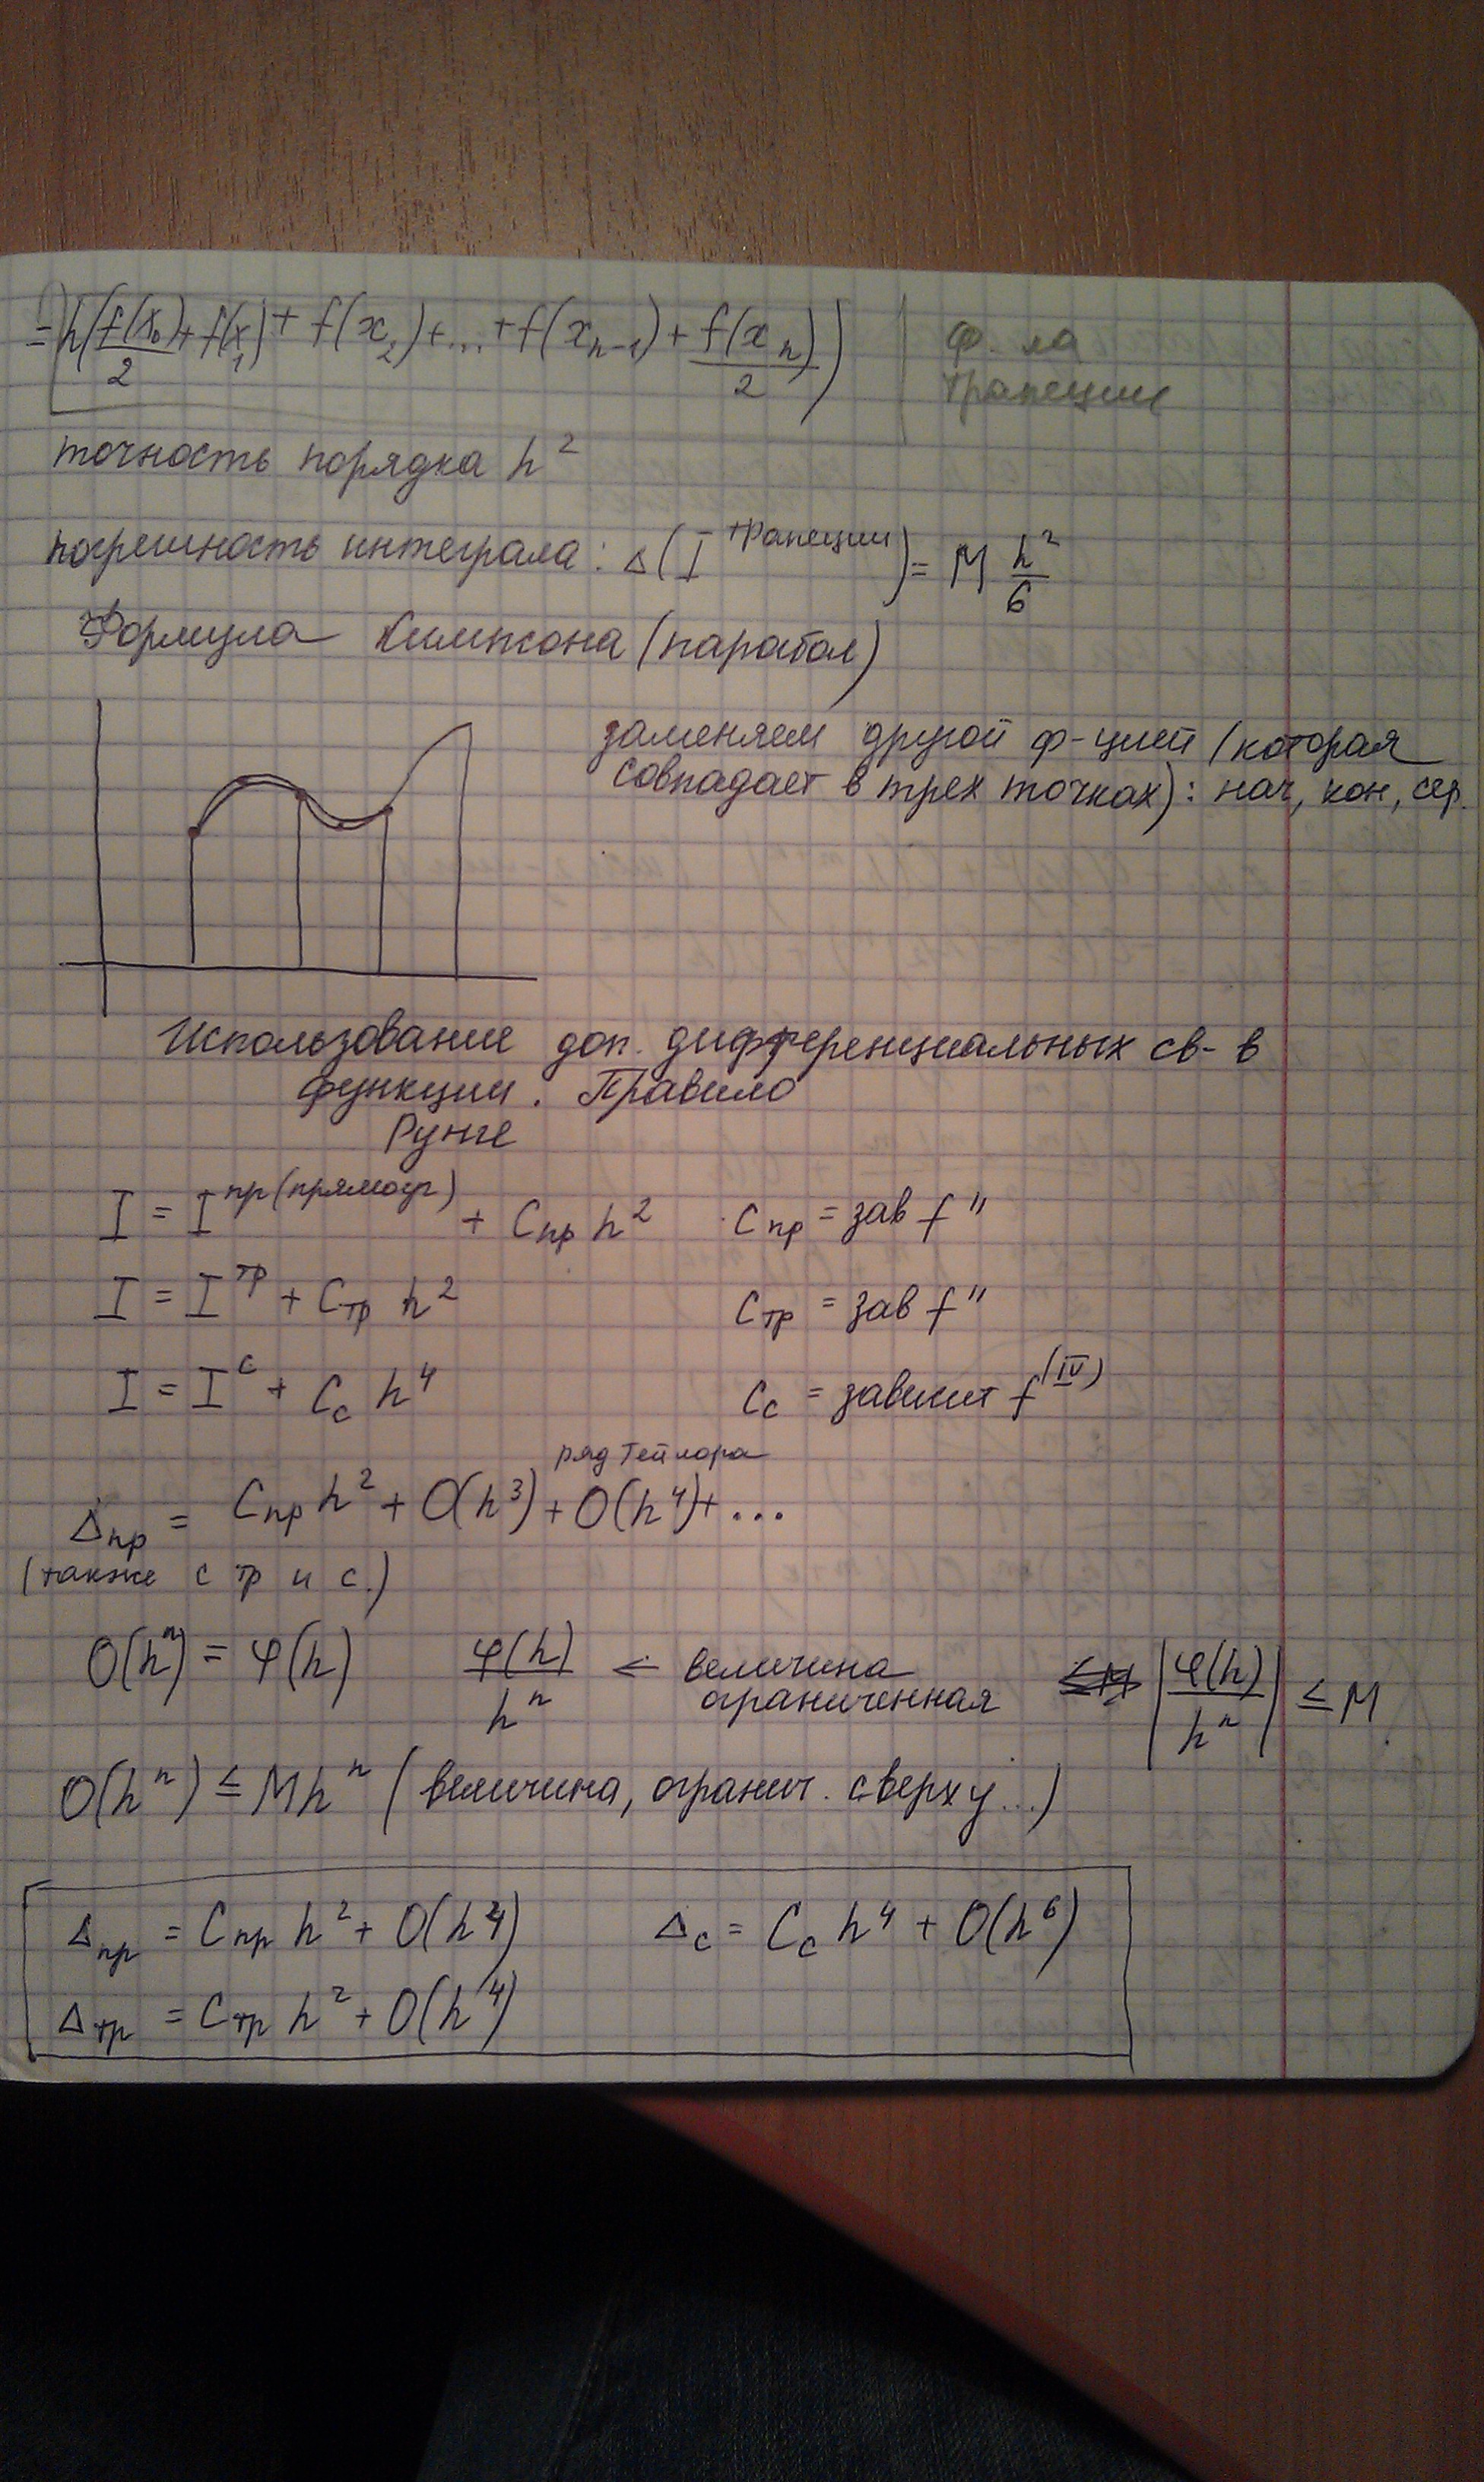 = h(f(x₀)/2 + f(x₁) + f(x₂) + ... + f(xₙ₋₁) + f(xₙ)/2)
ф-ла
трапеции
точность порядка h²
погрешность интеграла: Δ(I^трапеции) = M h²/6
Формула Симпсона (парабол)
заменяем другой ф-цией (которая
совпадает в трех точках): нач, кон, сер.
Использование доп. дифференциальных св-в
функции. Правило
Рунге
I = I^пр(прямоуг) + C_пр h²    C_пр = зав f''
I = I^тр + C_тр h²    C_тр = зав f''
I = I^c + C_c h⁴    C_c = зависит f^(IV)
ряд Тейлора
Δ_пр = C_пр h² + O(h³) + O(h⁴) + ...
(также с тр и с.)
O(hⁿ) = φ(h)    φ(h)/hⁿ ← величина ограниченная    |φ(h)/hⁿ| ≤ M
O(hⁿ) ≤ Mhⁿ (величина, огранич. сверху...)
Δ_пр = C_пр h² + O(h⁴)    Δ_c = C_c h⁴ + O(h⁶)
Δ_тр = C_тр h² + O(h⁴)